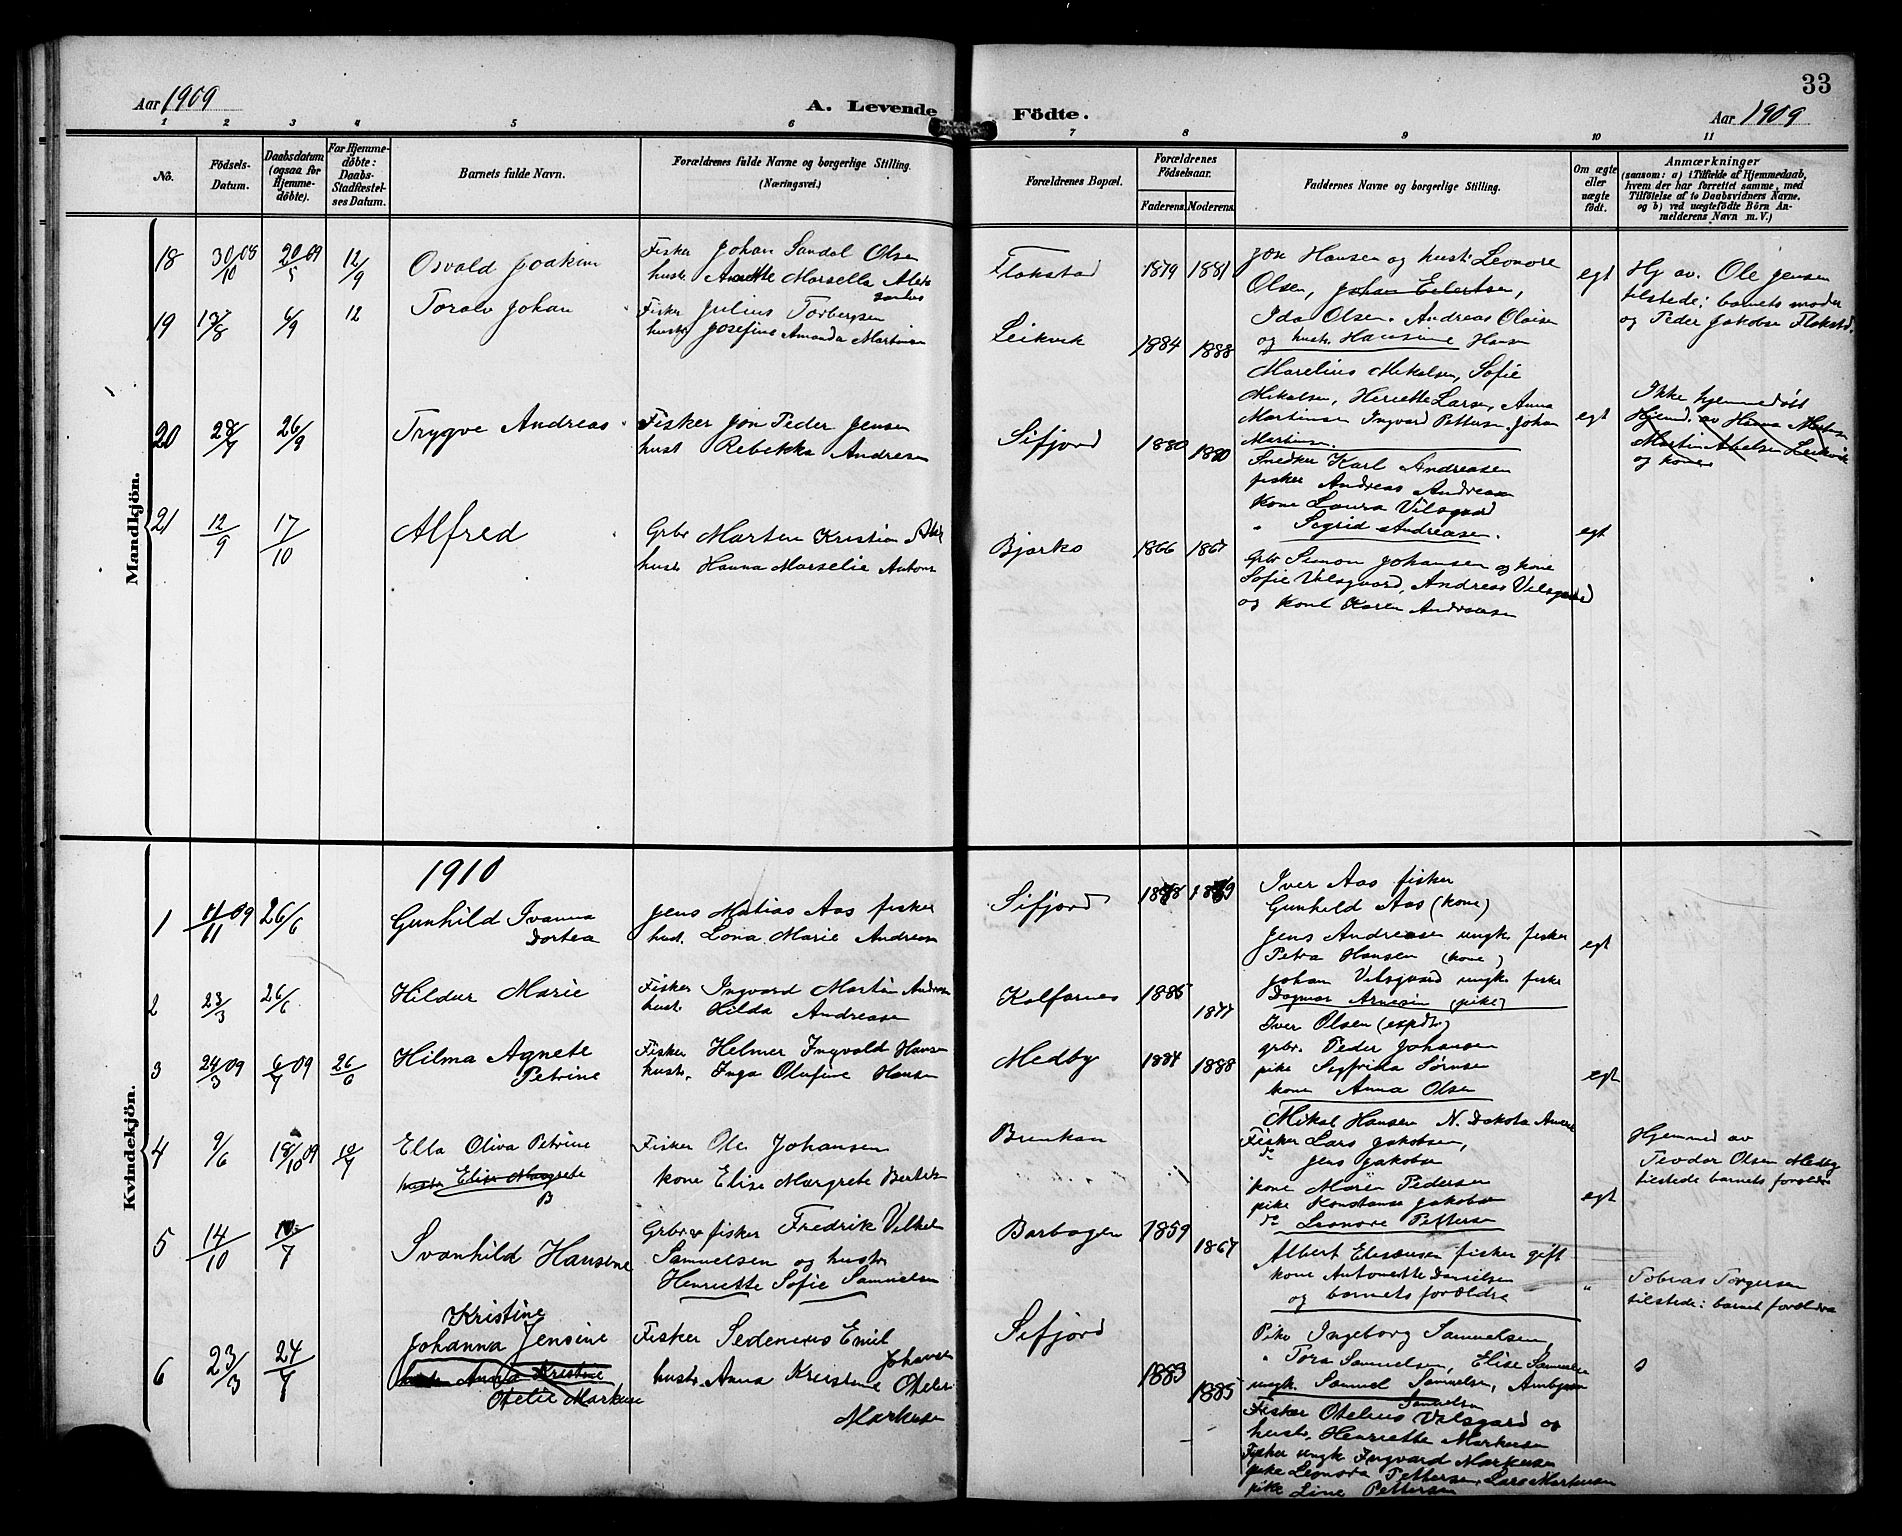 33
Aar 1909
A. Levende Födte.
Aar 1909
1 2 3 4 5 6 7 8 9 10 11
No.
Födsels-
Datum.
Daabsdatum
(ogsaa for
Hjemme-
döbte).
For Hjemme-
döbte:
Daabs-
Stadfæstel-
ses Datum.
Barnets fulde Navn.
Forældrenes fulde Navne og borgerlige Stilling.
(Næringsvei.)
Forældrenes Bopæl.
Forældrenes
Födselsaar.
Faderens.
Moderens.
Faddernes Navne og borgerlige Stilling.
Om ægte
eller
uægte
födt.
Anmærkninger
(saasom: a) i Tilfælde af Hjemmedaab,
hvem der har forrettet samme, med
Tilföielse af to Daabsvidners Navne.
og b) ved uægtefödte Börn An-
melderens Navn m. V.)
Mandkjön.
18
30/10 08
20/5 09
12/9
Osvald Joakim
Fisker Johan Sandal Olsen
hustr Anette Marsella
Flakstad
1879 1881
Jon Hansen og hustr Leonore
Olsen, Johan Eilertsen,
Ida Olsen. Andreas Olaisen
og hustr. Hansine Hansen
egt
Hj av. Ole Jensen
tilstede: barnets moder
og Peder Jakobsen Flakstad.
19
13/8
6/9
12
Toralv Johan
Fisker Julius Torbergsen
hustr Josefine Amanda Martinsen
Leikvik
1884 1888
Marelius Mikalsen, Sofie
Mikalsen, Henriette Larsen, Anna
Martinsen Ingvard Pettersen. Johan
Martinsen.
egt
Ikke hjemmedøbt
Hjemd. av Hanna
Martin Abelsen Leikvik
og kone
20
28/7
26/9
Trygve Andreas
Fisker Jon Peder Jensen
hust Rebekka Andresen
Sifjord
1880 1880
Snedker Karl Andreasen
fisker Andreas Andreasen
Kone Laura Vilsgaard
" Sigrid Andreasen.
egt
21
12/9
17/10
Alfred
Grbr Marten Kristian
hustr Hanna Marselie
Bjorko
1866 1867
Grbr Simon Johansen og kone
Sofie Valsgaard, Andreas Valsgaard
og kone Karen Andreasen
Kvindekjön.
1910
1
11/11 09
26/6
Gunhild Ivanna
Dortea
Jens Matias Aas fisker
hust. Lona Marie Andreasen
Sifjord
Iver Aas fisker
Gunhild Aas (kone)
Jens Andreasen ungk. fisker
Petra Hansen (kone)
Johan Valsgaard ungk. fisker
Dagmar Arnesen (pike)
egt
2
23/3
26/6
Hildur Marie
Fisker Ingvard Martin Andreasen
hustr Hilda Andreasen
Kalfarnes
1885
1877
Iver Olsen (expdt.)
grbr. Peder Johansen
pike Sigfrida Sørnsen
kone Anna Olsen
3
24/3 09
6/7 09
26/6
Hilma Agnete
Petrine
Fisker Helmer Ingvald Hansen
hustr. Inga Olufine Hansen
Medby
1884 1888
egt
Mikal Hansen N. Dakota
4
9/6
18/10 09
10/7
Ella Oliva Petrine
hustr Elise Margrete
B
Fisker Ole Johansen
kone Elise Margrete
Brenkan
Fisker Lars Jakobsen,
do Jens Jakobsen
kone Maren Pedersen
pike Konstanse Jakobsen
do Leonore Pettersen
egt
Hjemmed av
Teodor Olsen Medby
tilstede barnets forældre
5
14/10
10/7
Svanhild Hansine
Grbr fisker Fredrik
Samuelsen og hustr
Henriette Sofie Samuelsen
Barbogen
1859
1867
Albert Eliseussen fisker gift
kone Antonette Danielsen
og barnets forældre
"
Tobias Torgersen
tilstede: barnets forældre
6
23/3
24/7
Kristine
Johanna Jensine
Anna Kristine
Otelie Markusen
Fisker Sedenius Emil
Johansen
hustr. Anna Kristine Otelie
Markusen
Sifjord
1883
1885
Pike Ingeborg Samuelsen,
" Tora Samuelsen, Elise Samuelsen
ungk. Samuel Samuelsen,
Samuelsen
Fisker Otelius Valsgard og
hustr. Henriette Markusen
Fisker ungk Ingvard Markusen
pike Leonora Pettersen, Lars Markusen
pike Line Pettersen